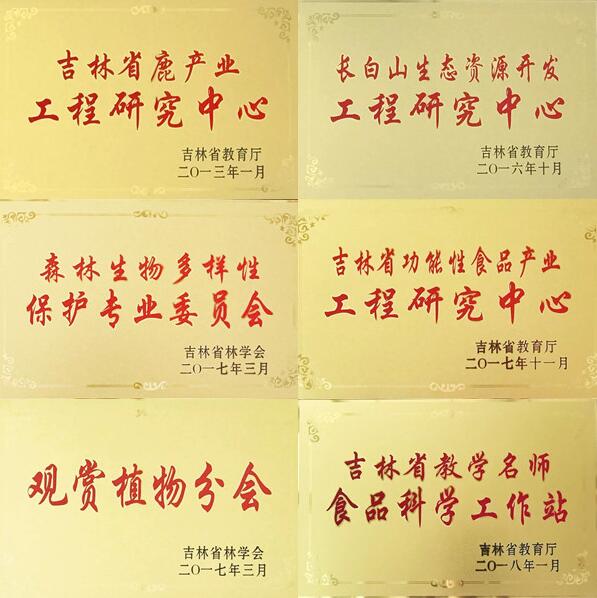 吉林省鹿产业
工程研究中心
吉林省教育厅
二〇一三年一月
长白山生态资源开发
工程研究中心
吉林省教育厅
二〇一六年十月
森林生物多样性
保护专业委员会
吉林省林学会
二〇一七年三月
吉林省功能性食品产业
工程研究中心
吉林省教育厅
二〇一七年十一月
观赏植物分会
吉林省林学会
二〇一七年三月
吉林省教学名师
食品科学工作站
吉林省教育厅
二〇一八年一月